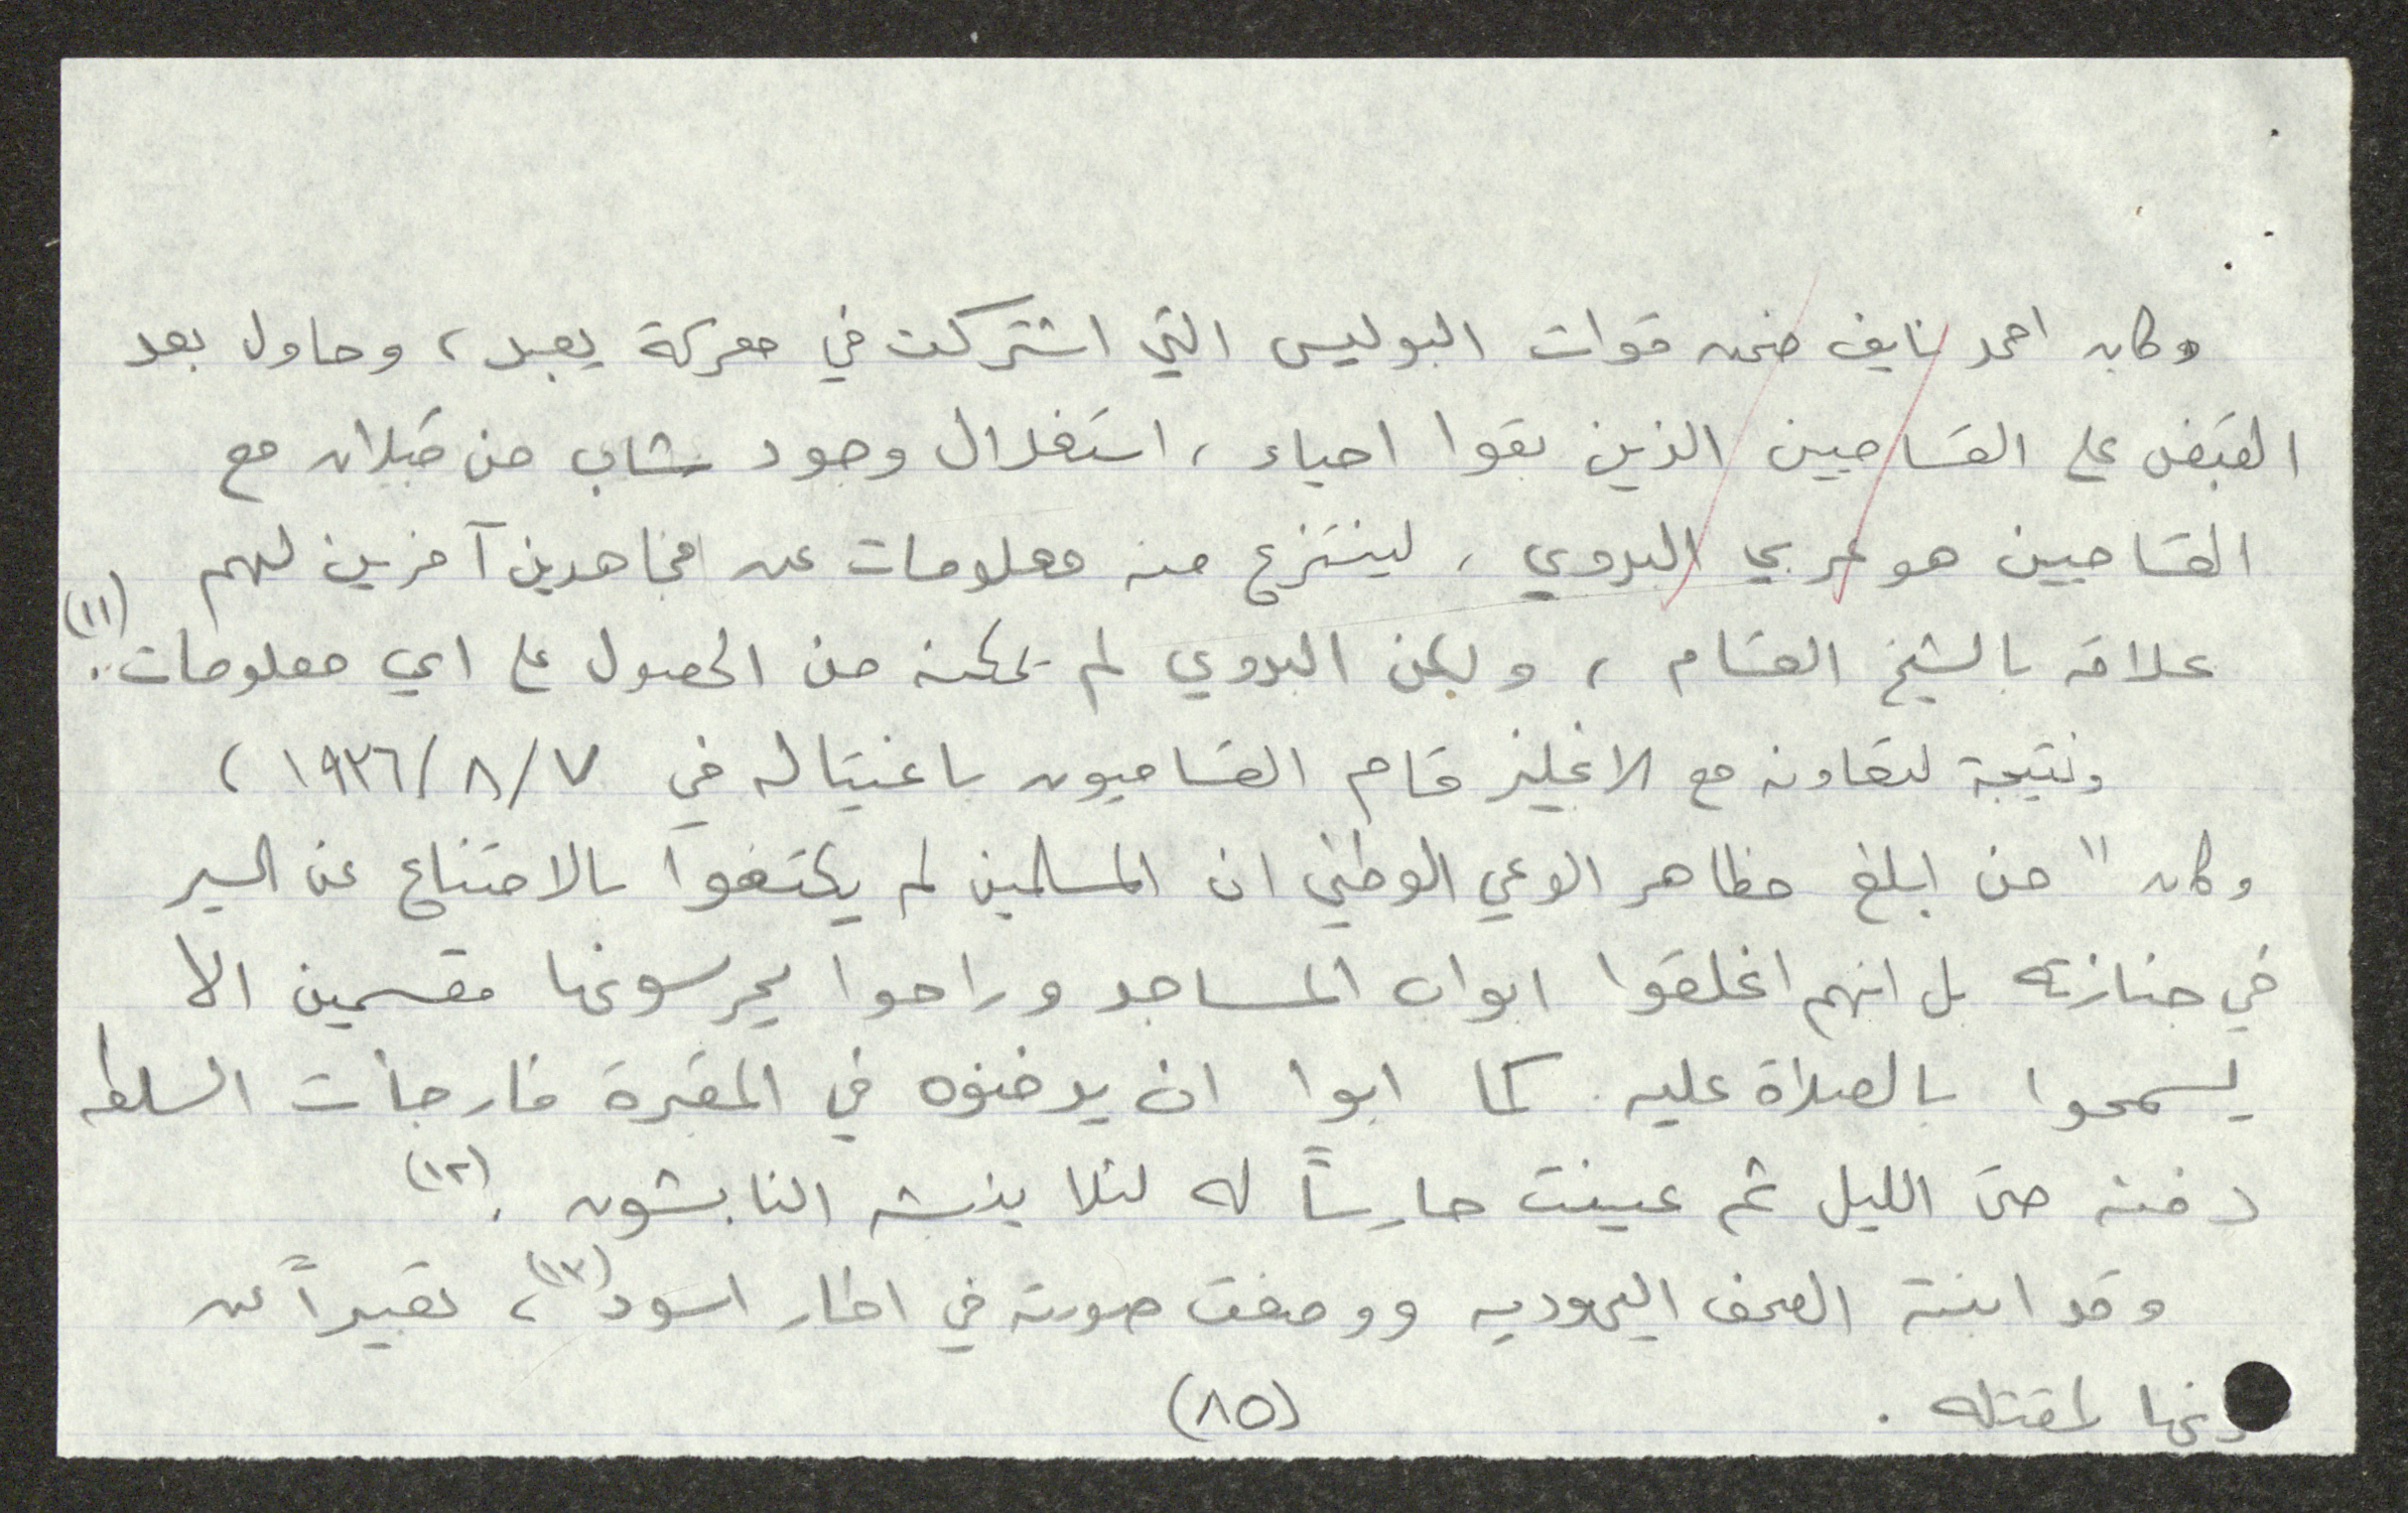 وكان احمد نايف ضمن قوات البوليس التي اشتركت في معركة يعبد، وحاول بعد
القبض على القساميين الذين بقوا احياء، استغلال وجود شاب من قبلان مع
القساميين هو عربي البدوي، لينتزع منه معلومات عن مجاهدين آخرين لهم
علاقه بالشيخ القسام، ولكن البدوي لم يمكنه من الحصول على اي معلومات.. (١١)
ونتيجة لتعاونه مع الانجليز قام القساميون باغتياله في ٧/٨/١٩٣٦،
وكان "من ابلغ مظاهر الوعي الوطني ان المسلمين لم يكتفوا بالامتناع عن السير
في جنازته بل انهم اغلقوا ابواب المساجد وراحوا يحرسونها مقسمين الا
يسمحوا بالصلاة عليه. كما ابوا ان يدفنوه في المقبرة فارجأت السلطه
دفنه حتى الليل ثم عينت حارساً له لئلا ينبشه النابشون. (١٢)
وقد ابنته الصحف اليهوديه ووضعت صورته في اطار اسود (١٣)، تعبيراً عن
لمقتله.
(٨٥)